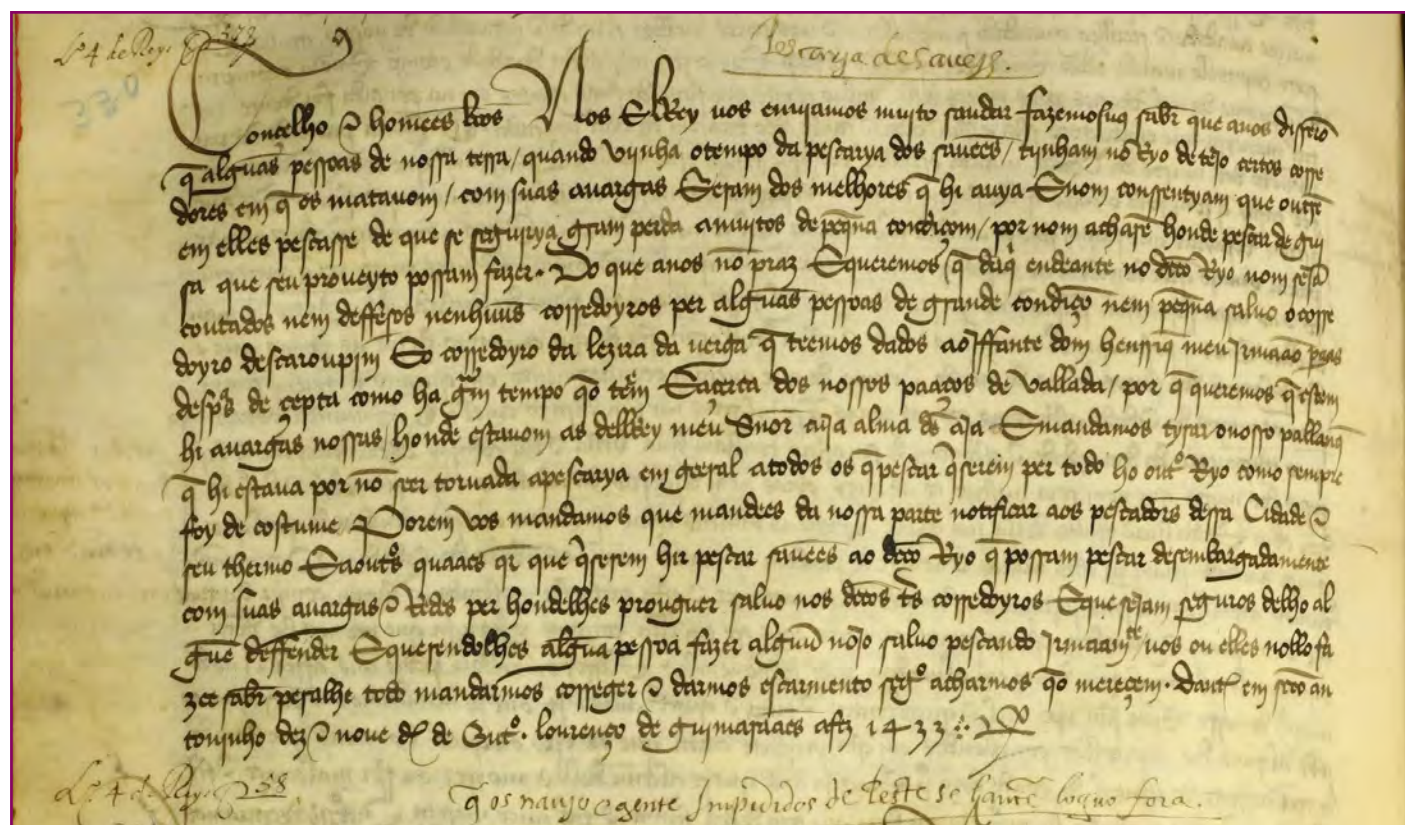 Lº 4 de Reys f 373
380
Pescarya de Saueis.
Conçelho & homeẽs boos Nos ElRey uos enuiamos muyto saudar fazemosuos sabr que anos disserõ
q̃ algũas pessoas de nossa terra / quando vijnha otempo da pescarya dos sauees / tijnham no Ryo de tejo certos corre
dores em q̃ os matauom / com suas auargas E eram dos melhores q̃ hi auya E nom conssentyam que outrẽ
em elles pescasse de que se seguirya gram perda amuitos de peq̃na condiçom / por nom acharẽ honde pescar de gui
sa que seu proueyto possam fazer. Do que anos nõ praz E queremos q̃ daq̃ endeante no dcõ Ryo nom seiã
coutados nem deffesos nenhuũs corredoyros per algũas pessoas de grande condiçõ nem peq̃na saluo o corre
doyro descaroupim E o corredoyro da lezira da uerga q̃ teemos dados ao Iffante dom henrriq̃ meu Irmaão
desp̃s de çepta como ha grãm tempo q̃o tẽm E açerca dos nossos paaços de vallada / por q̃ queremos q̃ estem
hi auargas nossas / honde estauom as delRey meu Sñor cuja alma ds̃ aja E mandamos tyrar onosso pallanq̃
q̃ hi estaua por nõ seer toruada apescarya em geeral atodos os q̃ pescar q̃serem per todo ho outº Ryo como sempre
foy de costume Porem vos mandamos que mandees da nossa parte notificar aos pescadors dessa Cidade &
seu thermo E aoutºs quaaes qr que q̃serem hir pescar sauees ao dcõ Ryo q̃ possam pescar desembargadamente
com suas auargas & Redes per hondelhes prouguer saluo nos dcõs trs corredoyros E que sejam seguros delho al
guẽ deffender E querendolhes algũa pessoa fazer alguũ nojo saluo pescando Irmaamte uos ou elles nollo fa
zee sabr peralhe todo mandarmos correger & darmos escarmento segº acharmos q̃o mereçem. dant em scõ an
toninho dez & noue ds de Outº. lourenço de guimaraães afez 1433
Lº 4 de Reys f 58
q̃ os nauios e gente Impedidos de Peste se lancẽ loguo fora.